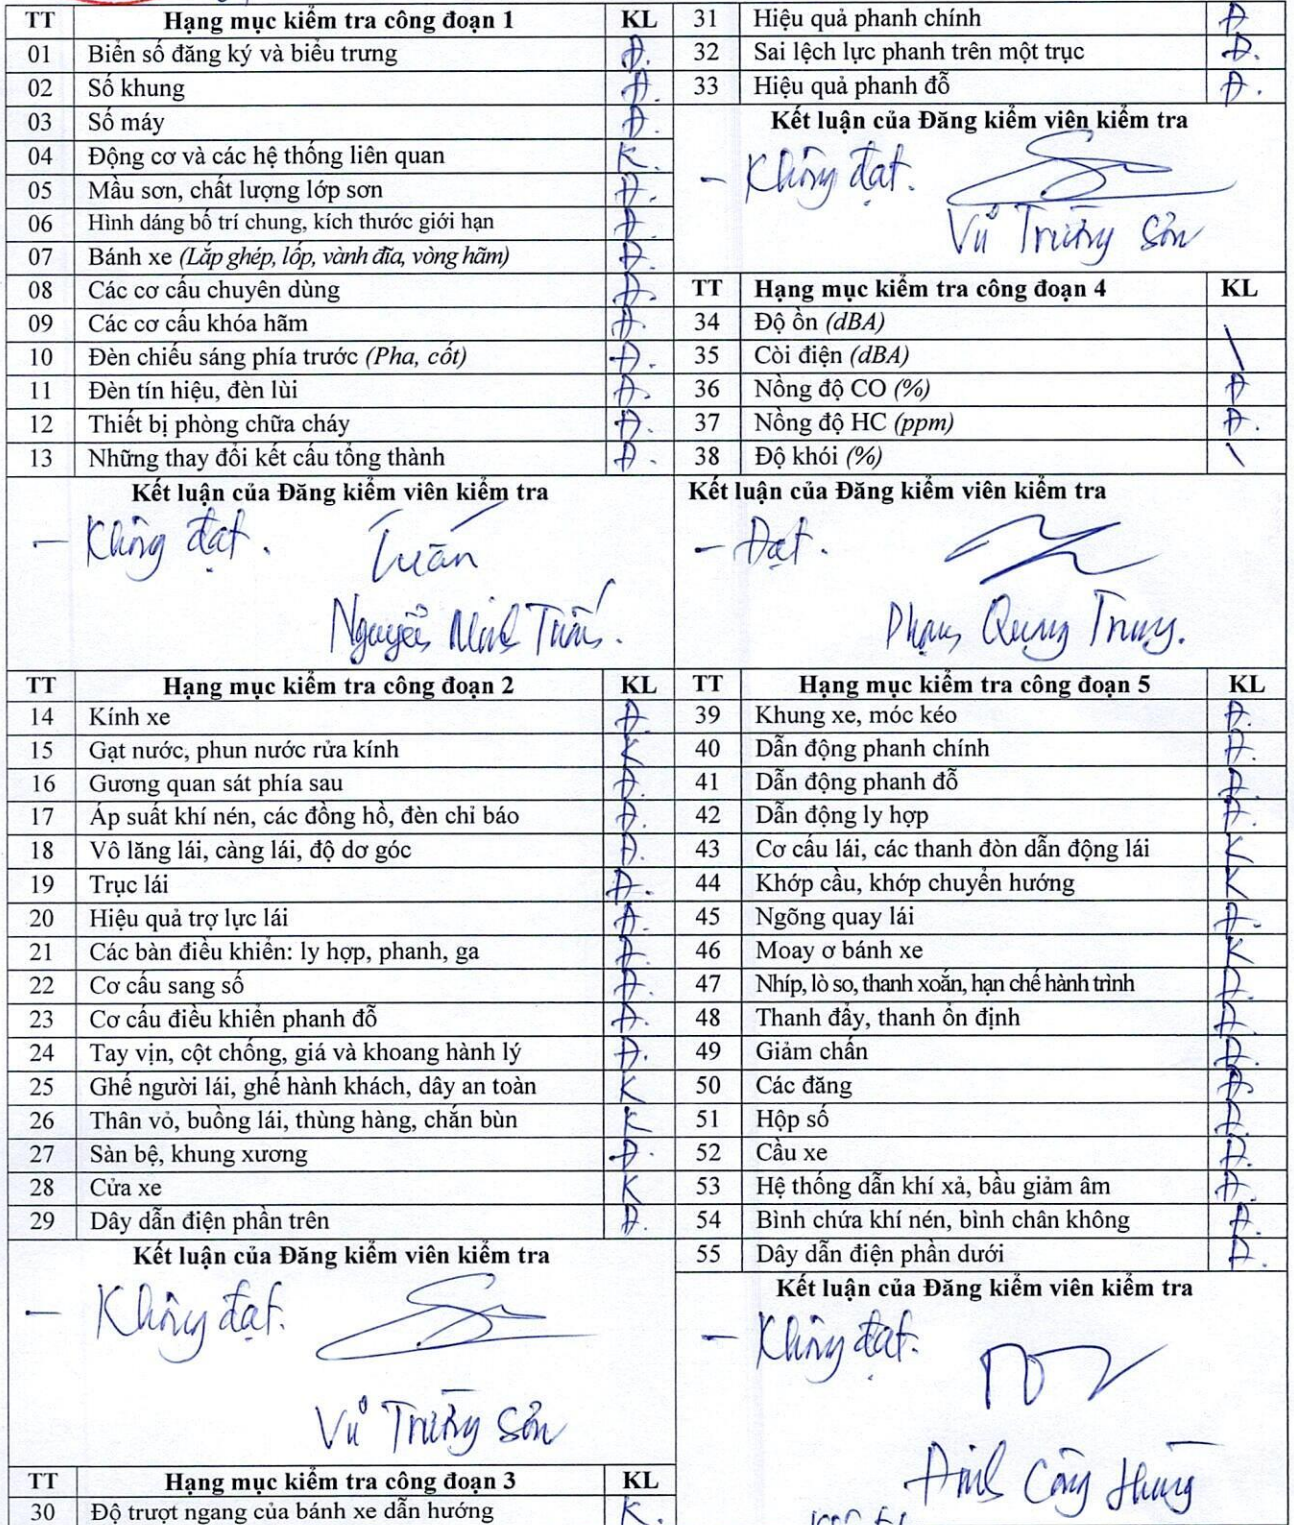 TT Hạng mục kiểm tra công đoạn 1 KL
01 Biển số đăng ký và biểu trưng Đ.
02 Số khung Đ.
03 Số máy Đ.
04 Động cơ và các hệ thống liên quan K.
05 Mầu sơn, chất lượng lớp sơn Đ.
06 Hình dáng bố trí chung, kích thước giới hạn Đ.
07 Bánh xe (Lắp ghép, lốp, vành đĩa, vòng hãm) Đ.
08 Các cơ cấu chuyên dùng Đ.
09 Các cơ cấu khóa hãm Đ.
10 Đèn chiếu sáng phía trước (Pha, cốt) Đ.
11 Đèn tín hiệu, đèn lùi Đ.
12 Thiết bị phòng chữa cháy Đ.
13 Những thay đổi kết cấu tổng thành Đ.
Kết luận của Đăng kiểm viên kiểm tra
- Không đạt.
Tuấn
Nguyễn Minh Tuấn.
TT Hạng mục kiểm tra công đoạn 2 KL
14 Kính xe Đ
15 Gạt nước, phun nước rửa kính K
16 Gương quan sát phía sau Đ.
17 Áp suất khí nén, các đồng hồ, đèn chỉ báo Đ.
18 Vô lăng lái, càng lái, độ dơ góc Đ.
19 Trục lái Đ.
20 Hiệu quả trợ lực lái Đ.
21 Các bàn điều khiển: ly hợp, phanh, ga Đ.
22 Cơ cấu sang số Đ.
23 Cơ cấu điều khiển phanh đỗ Đ.
24 Tay vịn, cột chống, giá và khoang hành lý Đ.
25 Ghế người lái, ghế hành khách, dây an toàn K
26 Thân vỏ, buồng lái, thùng hàng, chắn bùn K
27 Sàn bệ, khung xương Đ.
28 Cửa xe K
29 Dây dẫn điện phần trên Đ.
Kết luận của Đăng kiểm viên kiểm tra
- Không đạt.
Vũ Trường Sơn
TT Hạng mục kiểm tra công đoạn 3 KL
30 Độ trượt ngang của bánh xe dẫn hướng K.
31 Hiệu quả phanh chính Đ
32 Sai lệch lực phanh trên một trục Đ.
33 Hiệu quả phanh đỗ Đ.
Kết luận của Đăng kiểm viên kiểm tra
- Không đạt.
Vũ Trường Sơn
TT Hạng mục kiểm tra công đoạn 4 KL
34 Độ ồn (dBA)
35 Còi điện (dBA) \
36 Nồng độ CO (%) Đ
37 Nồng độ HC (ppm) Đ.
38 Độ khói (%) \
Kết luận của Đăng kiểm viên kiểm tra
- Đạt.
Phạm Quang Trung.
TT Hạng mục kiểm tra công đoạn 5 KL
39 Khung xe, móc kéo Đ.
40 Dẫn động phanh chính Đ.
41 Dẫn động phanh đỗ Đ.
42 Dẫn động ly hợp Đ.
43 Cơ cấu lái, các thanh đòn dẫn động lái K
44 Khớp cầu, khớp chuyển hướng K
45 Ngõng quay lái Đ.
46 Moay ơ bánh xe K
47 Nhíp, lò so, thanh xoắn, hạn chế hành trình Đ.
48 Thanh đẩy, thanh ổn định Đ.
49 Giảm chấn Đ.
50 Các đăng Đ
51 Hộp số Đ.
52 Cầu xe Đ.
53 Hệ thống dẫn khí xả, bầu giảm âm Đ.
54 Bình chứa khí nén, bình chân không Đ.
55 Dây dẫn điện phần dưới Đ.
Kết luận của Đăng kiểm viên kiểm tra
- Không đạt.
Đinh Công Hưng